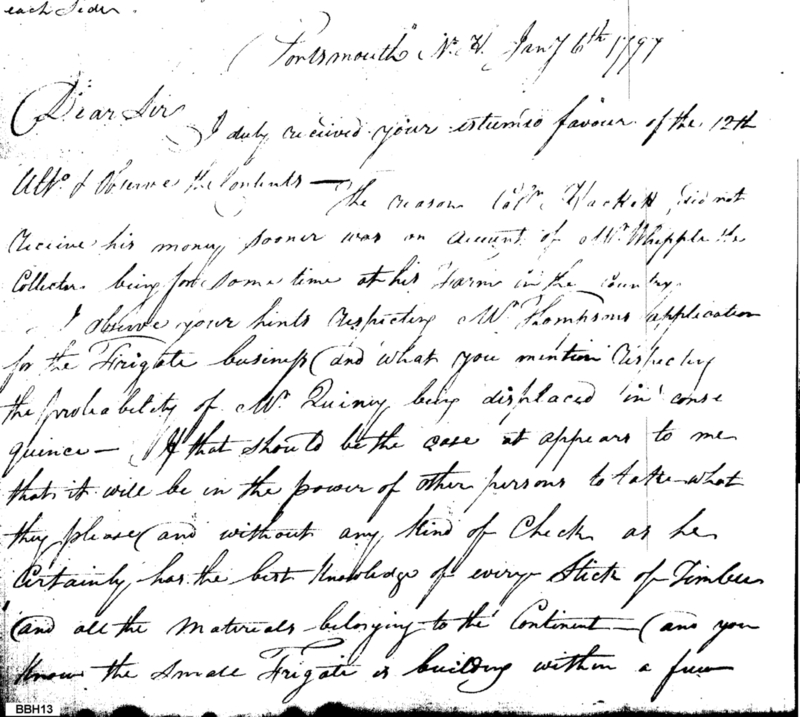 each side.
Portsmouth N. H. Jany 6th 1797
Dear Sir
I duly received your esteemed favour of the 12th
Ulto. & Observe the Contents — The reason Colo. Hackett did not
receive his money sooner was on account of Mr. Whipple the
Collector being for some time at his Farm in the Country.
I observe your hints respecting Mr. Thompsons application
for the Frigate business (and what you mention respecting
the probability of Mr. Quincy being displaced in conse
quince — If that should be the case it appears to me
that it will be in the power of other persons to take what
they please (and without any kind of Check as he
Certainly has the best knowledge of every Stick of Timber
(and all the Materials belonging to the Continent — (and you
know the small Frigate is building within a few
BBH13